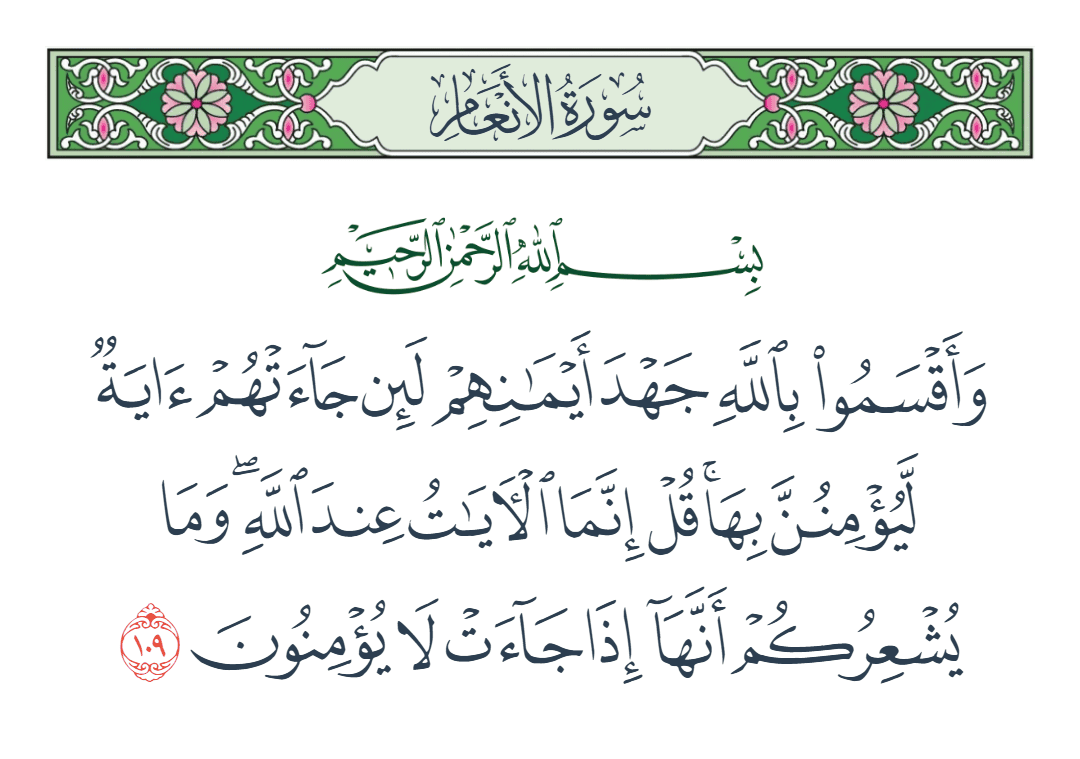 سُورَةُ الأَنْعَامِ
بِسْمِ ٱللَّهِ ٱلرَّحْمَٰنِ ٱلرَّحِيمِ
وَأَقْسَمُوا۟ بِٱللَّهِ جَهْدَ أَيْمَـٰنِهِمْ لَئِن جَآءَتْهُمْ ءَايَةٌ
لَّيُؤْمِنُنَّ بِهَا ۚ قُلْ إِنَّمَا ٱلْـَٔايَـٰتُ عِندَ ٱللَّهِ ۖ وَمَا
يُشْعِرُكُمْ أَنَّهَآ إِذَا جَآءَتْ لَا يُؤْمِنُونَ ١٠٩